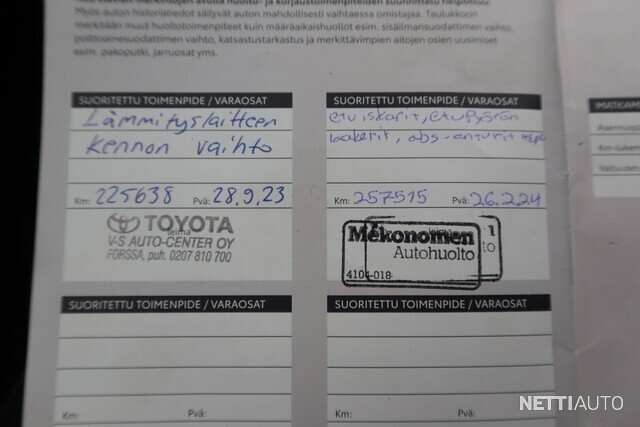 Myös auton historiatiedot säilyvät auton mahdollisesti vaihtaessa omistajaa. Taulukkoon
merkitään muut huoltotoimenpiteet kuin määräaikaishuollot esim. sisäilmansuodattimen vaihto,
polttoainesuodattimen vaihto, katsastustarkastus ja merkittävimpien aitojen osien uusimiset
esim. pakoputki, jarruosat yms.
SUORITETTU TOIMENPIDE / VARAOSAT
Lämmityslaitteen
kennon vaihto
Km: 225638 Pvä: 28.9.23
TOYOTA
leima
V-S AUTO-CENTER OY
FORSSA, puh. 0207 810 700
SUORITETTU TOIMENPIDE / VARAOSAT
etuiskarit, etupyörän
laakerit, abs-anturit
Km: 257515 Pvä: 26.2.24
Mekonomen
Autohuolto
4104-018
SUORITETTU TOIMENPIDE / VARAOSAT
Km: Pvä:
SUORITETTU TOIMENPIDE / VARAOSAT
Km: Pvä:
NETTIAUTO